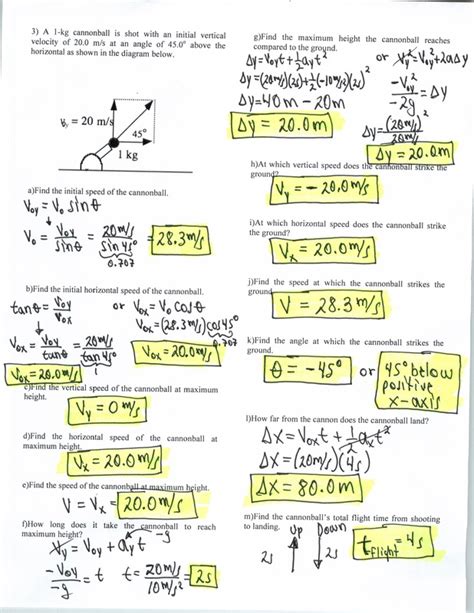 3) A 1-kg cannonball is shot with an initial vertical
velocity of 20.0 m/s at an angle of 45.0° above the
horizontal as shown in the diagram below.
Vy = 20 m/s
45°
1 kg
a)Find the initial speed of the cannonball.
Voy = Vo sinθ
Vo = Voy/sinθ = 20m/s/sin 45° = 28.3m/s
0.707
b)Find the initial horizontal speed of the cannonball.
tanθ = Voy/Vox or Vox = Vo cosθ
Vox = (28.3m/s)cos45°
0.707
Vox = Voy/tanθ = 20m/s/tan 45° Vox = 20.0m/s
1
Vox = 20.0m/s
c)Find the vertical speed of the cannonball at maximum
height.
Vy = 0 m/s
d)Find the horizontal speed of the cannonball at
maximum height.
Vx = 20.0 m/s
e)Find the speed of the cannonball at maximum height.
V = Vx = 20.0m/s
f)How long does it take the cannonball to reach
maximum height?
Vy = Voy + ayt -g
-Voy/-g = t t = 20m/s/10m/s² = 2s
g)Find the maximum height the cannonball reaches
compared to the ground.
Δy = Voyt + ½ayt² or Vy² = Voy² + 2aΔy
Δy = (20m/s)(2s) + ½(-10m/s²)(2s)²
-Voy²/-2g = Δy
Δy = 40m - 20m
Δy = 20.0m
Δy = 20.0m
h)At which vertical speed does the cannonball strike the
ground?
Vy = -20.0m/s
i)At which horizontal speed does the cannonball strike
the ground?
Vx = 20.0m/s
j)Find the speed at which the cannonball strikes the
ground.
V = 28.3m/s
k)Find the angle at which the cannonball strikes the
ground.
θ = -45° or 45° below
positive
x-axis
l)How far from the cannon does the cannonball land?
Δx = Voxt + ½axt²
Δx = (20m/s)(4s)
Δx = 80.0m
m)Find the cannonball's total flight time from shooting
to landing.
Up Down
2s 2s
tflight = 4s